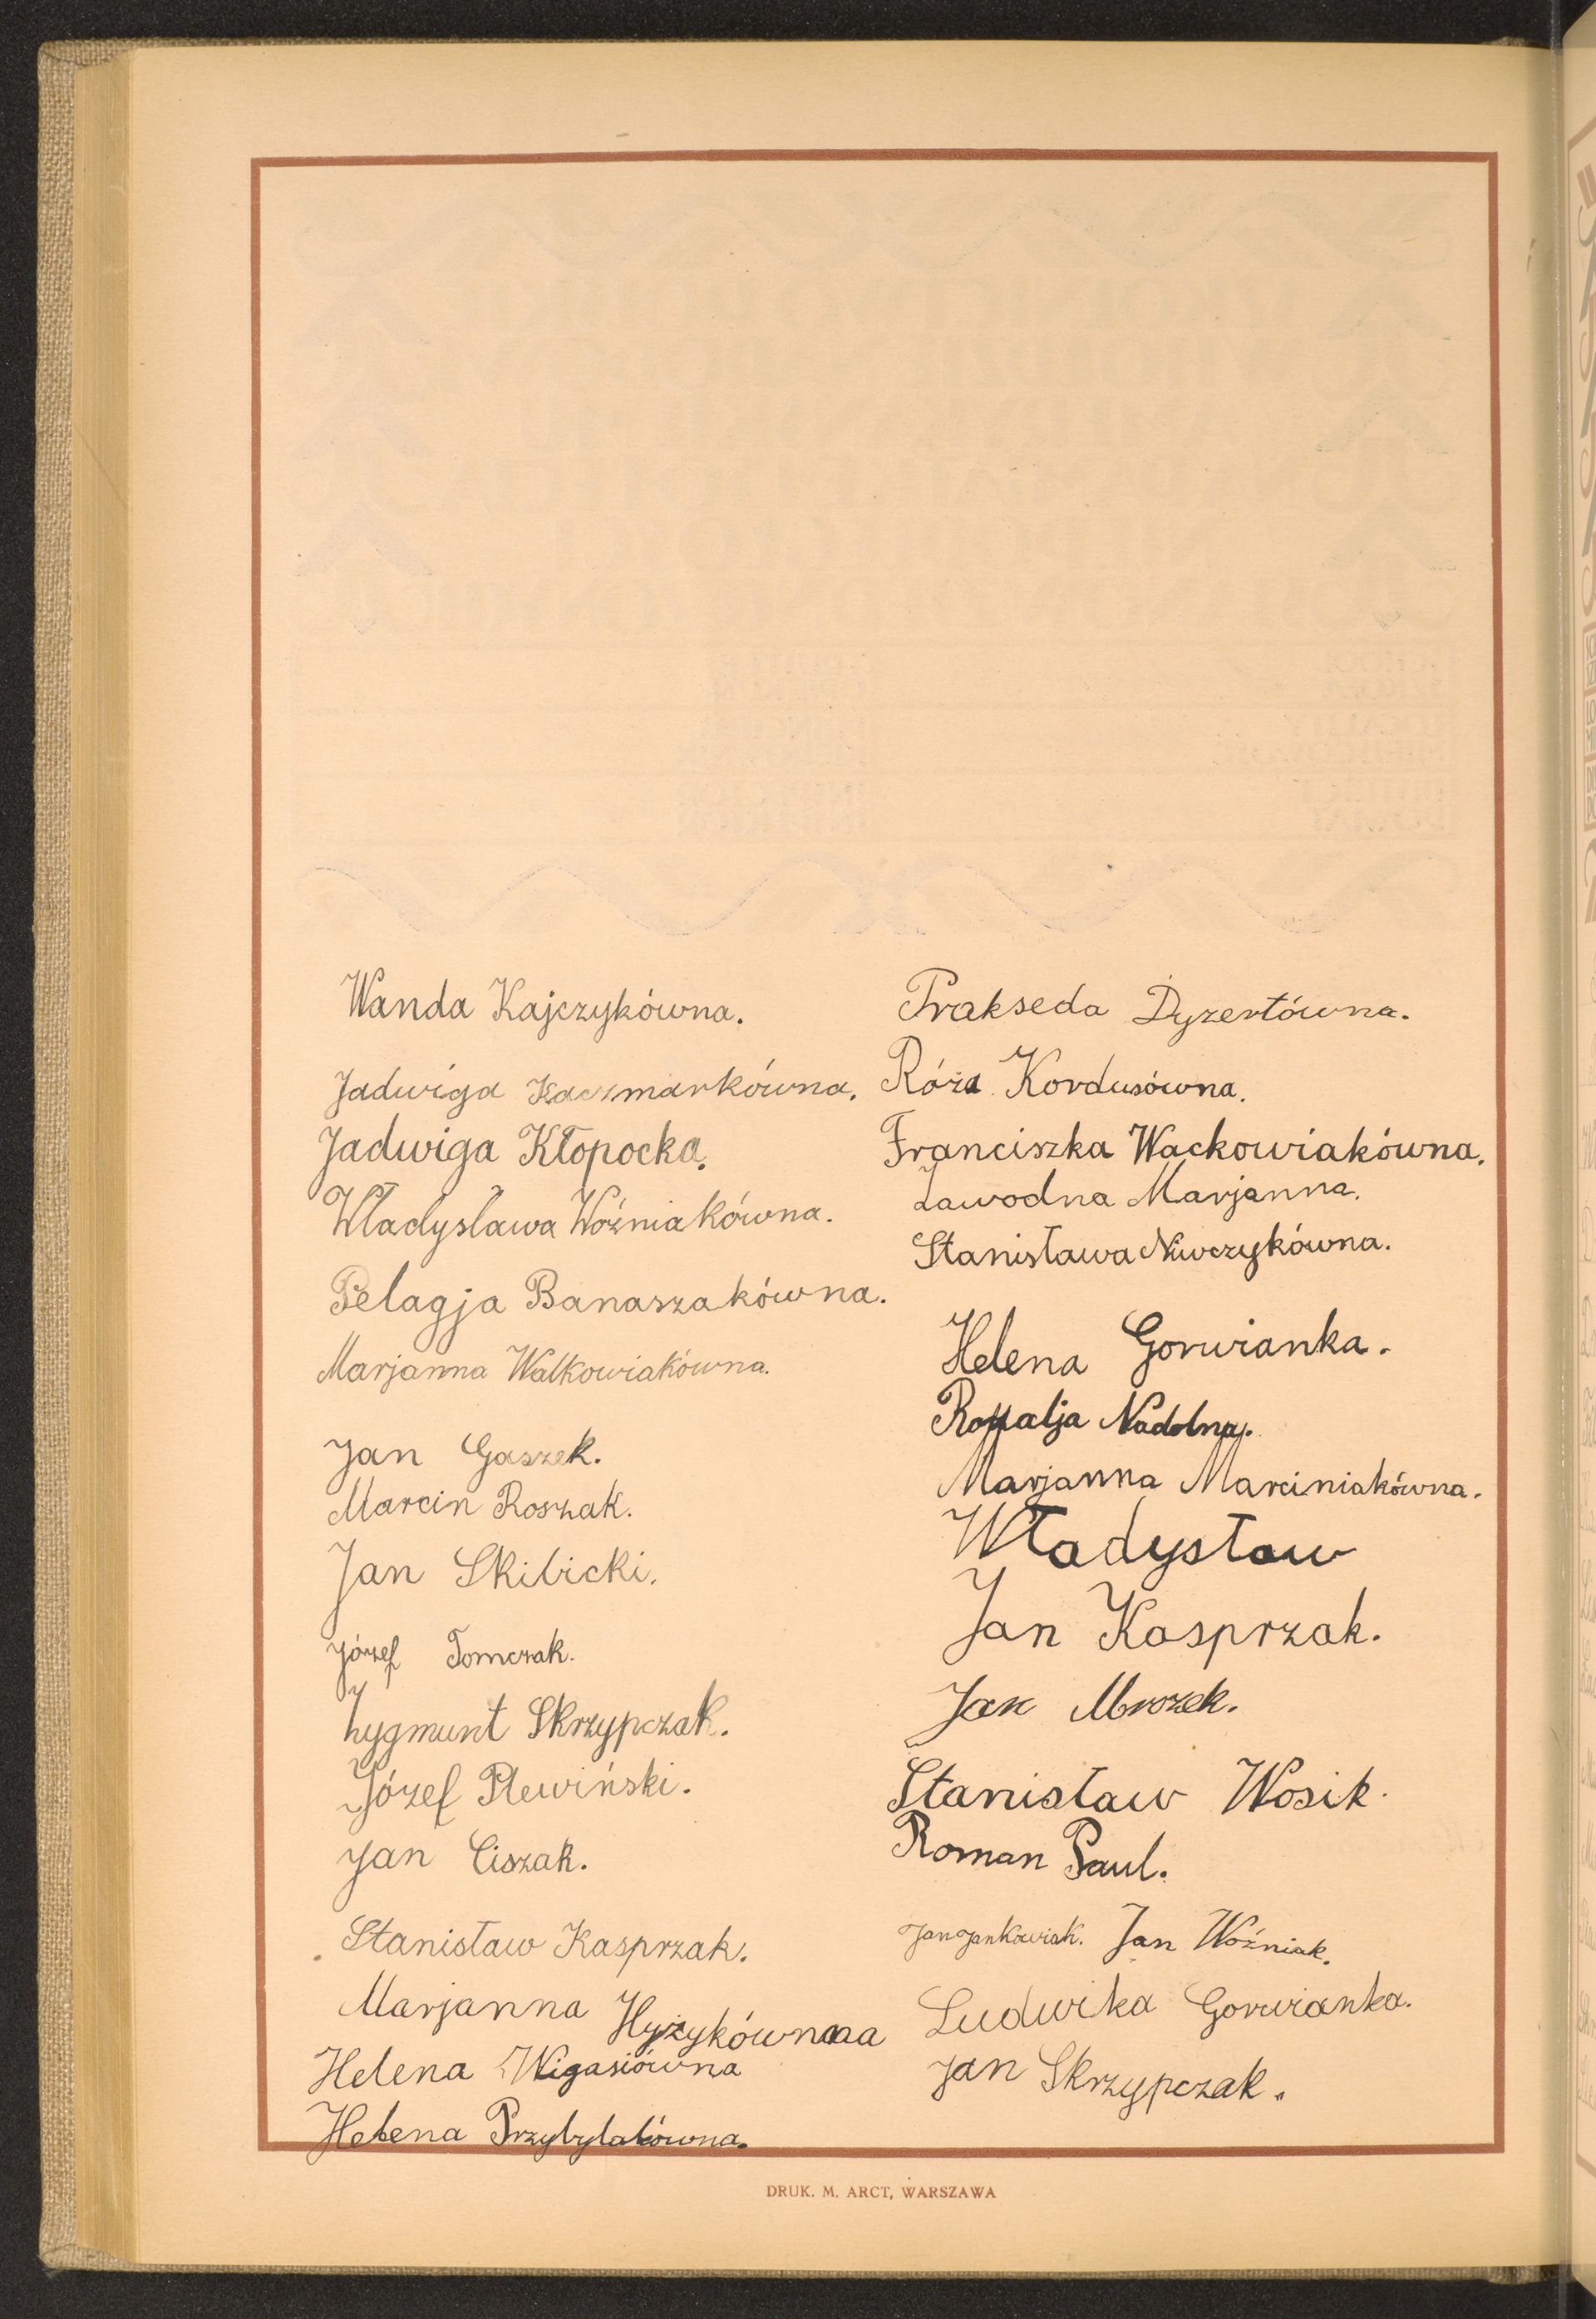 Wanda Kajczykówna.
Jadwiga Kaczmarkówna.
Jadwiga Kłopocka.
Władysława Woźniakówna.
Pelagja Banaszakówna.
Marjanna Walkowiakówna.
Jan Gaszek.
Marcin Roszak.
Jan Skibicki.
Józef Tomczak.
Zygmunt Skrzypczak.
Józef Plewiński.
Jan Ciszak.
Stanisław Kasprzak.
Marjanna Hyżykównaa
Helena Wigasiówna
Helena Przybylakówna.
Prakseda Dyzertówna.
Róża Kordusówna.
Franciszka Wackowiakówna.
Zawodna Marjanna.
Stanisława Niwczykówna.
Helena Gorwianka.
Rozalja Nadolna.
Marjanna Marciniakówna.
Władysław
Jan Kasprzak.
Jan Mrozek.
Stanisław Wosik.
Roman Paul.
Jan Jankowiak. Jan Woźniak.
Ludwika Gorwianka.
Jan Skrzypczak.
DRUK. M. ARCT, WARSZAWA